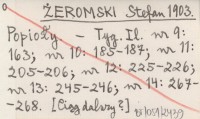 ŻEROMSKI Stefan 1903.
Popioły. – Tyg. Il. nr 9:
163; nr 10: 185-187; nr 11:
205-206; nr 12: 225-226;
nr 13: 245-246; nr 14: 267-
-268. [Ciąg dalszy?]